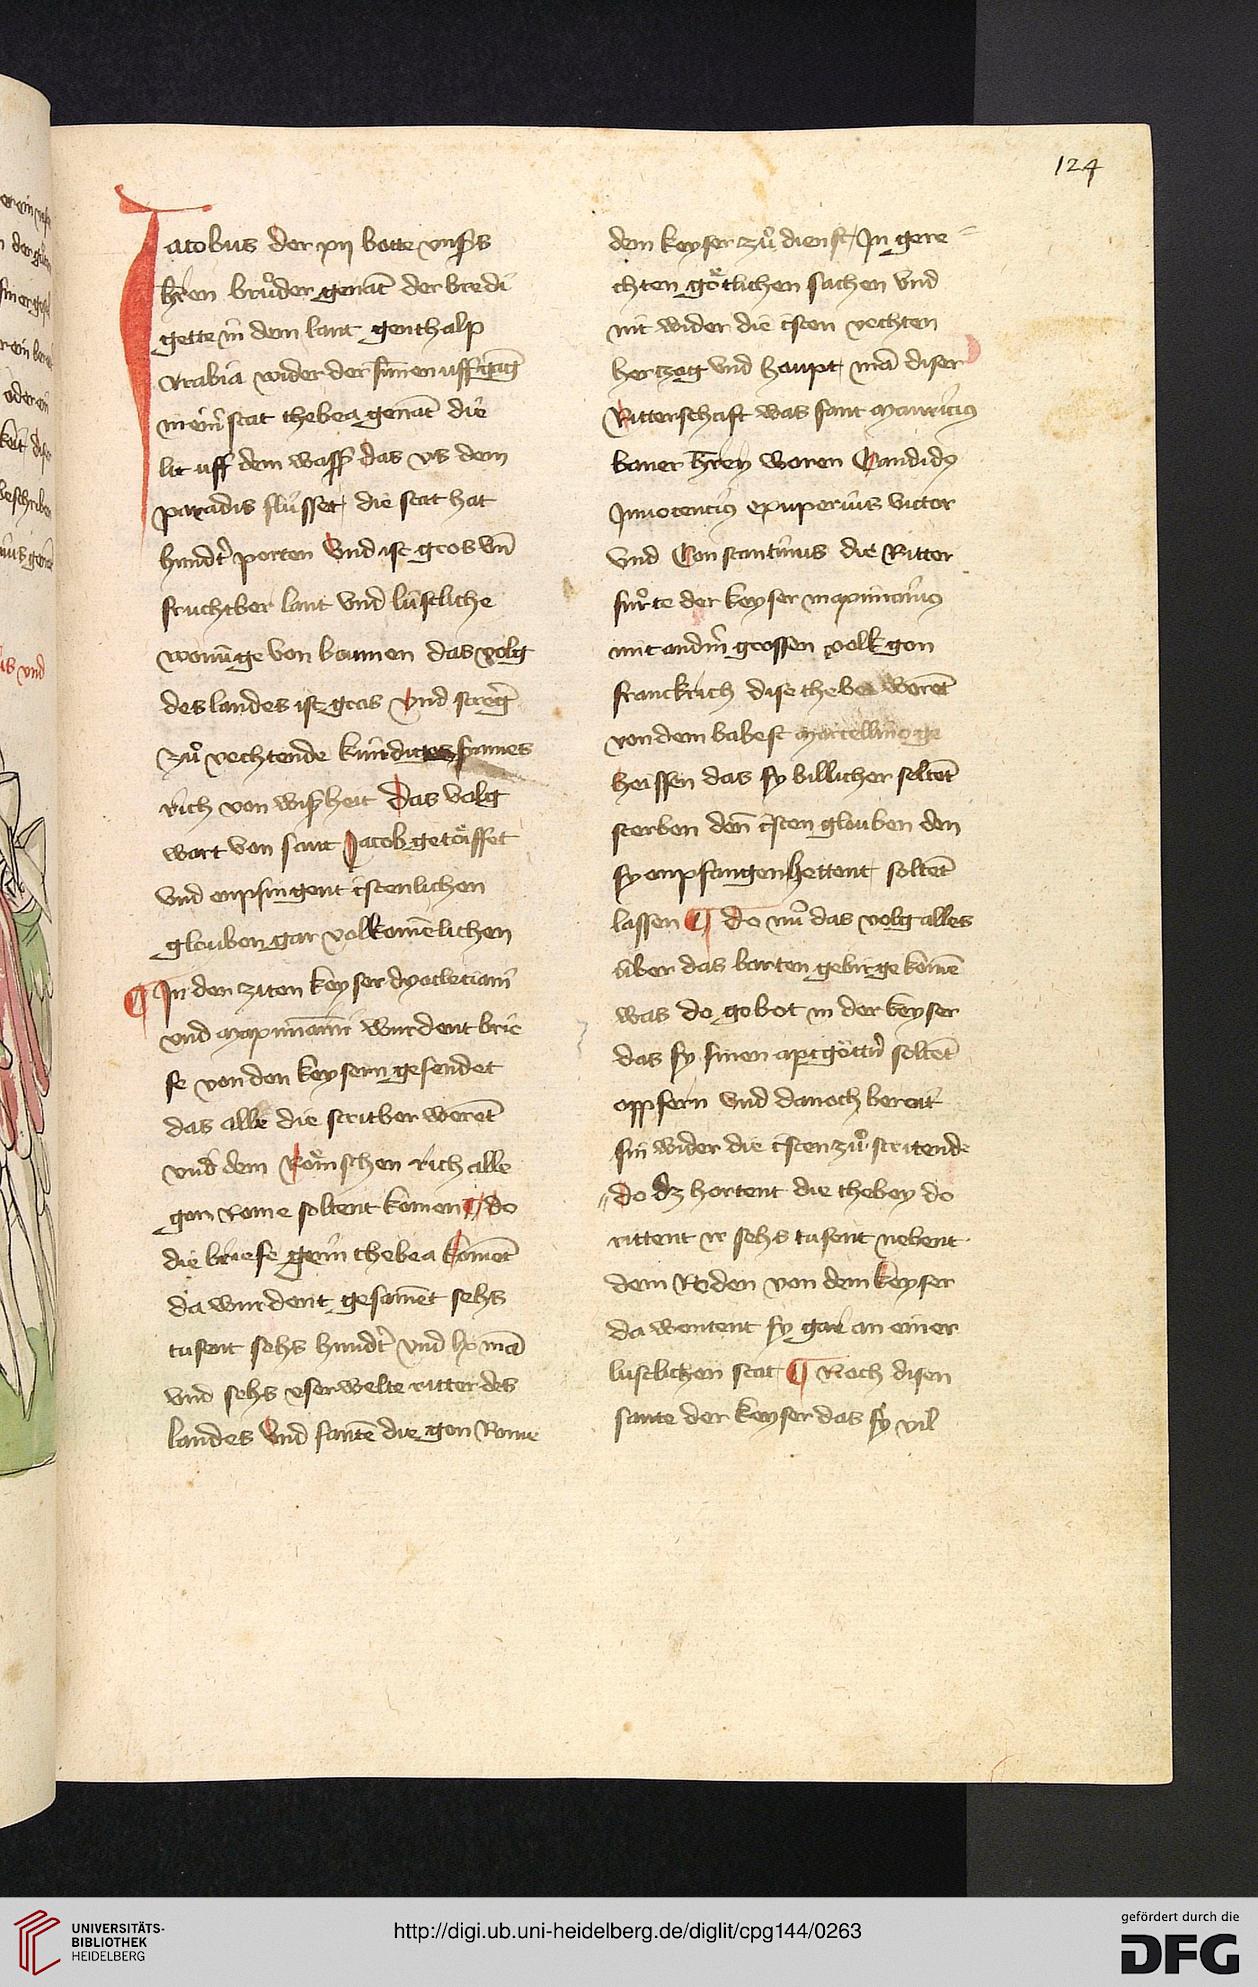 124
Jacobus der xij botte vnsˀs
hˀren bruͦder genāt der bredi
gette in dem lant genthalp
Arabia wider der sūnen uffgāg
in einˀ stat thebea genāt die
lit uff dem wassˀ das vs dem
paradis flússet die stat hat
hundtˀ porten vnd ist gros vn̄
fruchtber lant vnd lústliche
wonūge von boumen das volg
des landes ist gros vnd stregˀ
zuͦ vechtende
rich von wisheit das volg
wart von sant Jacob getoͤiffet
vnd enpfingent cristenlichen
glouben gar volkomēlichen
¶ Jn den ziten keyser dyocleciani
vnd maximiani wurdent brie
fe von den keysern gesendet
das alle die stritber werēt
vnd dem Roͤmschen rich alle
gon rome soltent komen ¶ do
die briefe gein thebea komēt
da wurdent gesamēt sehs
tusent sehs hundtˀ vnd lx mā
vnd sehs vserwelte ritter des
landes vnd santē die gon Rome
dem keyser zuͦ dienst Jn gere
chten goͤtlichen sachen vnd
nit wider die cristen vechten
hertzog vnd houpt mā diser
Ritterschaft was sant mauricius
baner hˀren woren Candidus
Jnnocencius exuperius victor
vnd Constantinus die Ritter
fuͦrte der keyser maximianus
mit andˀn grossen volk gon
franckrich dise thebei worēt
von dem babest marcellino ge
heissen das sy billicher soltēt
sterben den̄ cristen glouben den
sy enpfangen hettent soltēt
lassen ¶ do nuͦ das volg alles
über das barten gebirge komē
was do gobot in der keyser
das sy sinen aptgöttˀn soltēt
oppfern vnd danoch bereit
sin wider die cristen zuͦ stritende
do dz hortent die thebey do
rittent ir sehs tusent nebent
dem Roden von dem keyser
da wontent sy gar an einer
lustlichen stat ¶ Noch disen
sante der keyser das sy vil
UNIVERSITÄTS-
BIBLIOTHEK
HEIDELBERG
http://digi.ub.uni-heidelberg.de/diglit/cpg144/0263
gefördert durch die
DFG